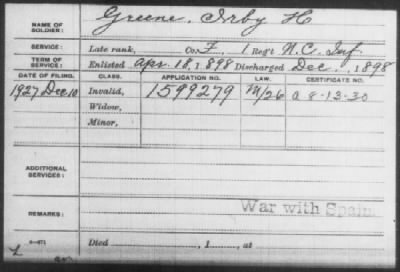 NAME OF SOLDIER: Greene, Irby H
SERVICE: Late rank, Co. F, 1 Reg't N.C. Inf.
TERM OF SERVICE: Enlisted Apr. 18, 1898 Discharged Dec., 1898
DATE OF FILING. CLASS. APPLICATION NO. LAW. CERTIFICATE NO.
1927 Dec 10 Invalid, 1599279 M/26 a 8-13-30
Widow,
Minor,
ADDITIONAL SERVICES:
REMARKS: War with Spain
Died , 1 , at